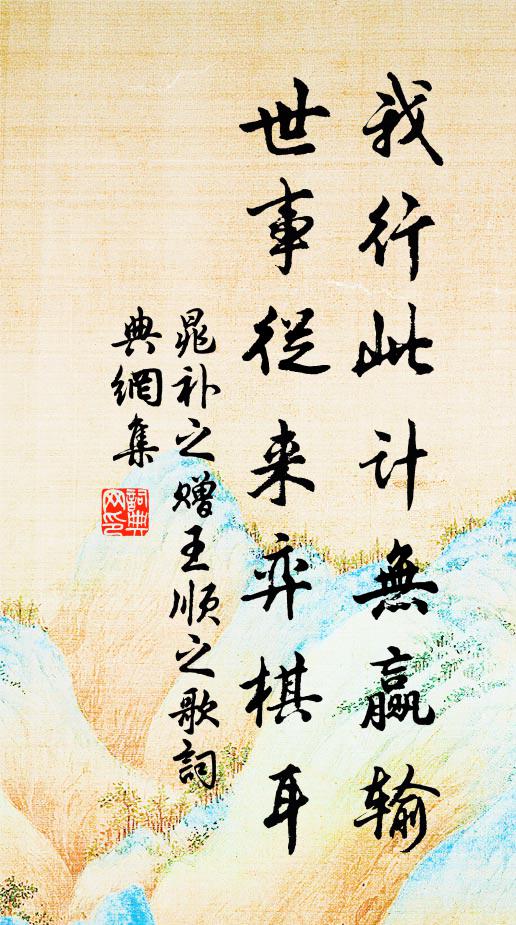 我行此计無赢输
世事從来弈棋耳
晁补之赠王顺之歌詞
典網集
詞典
网印